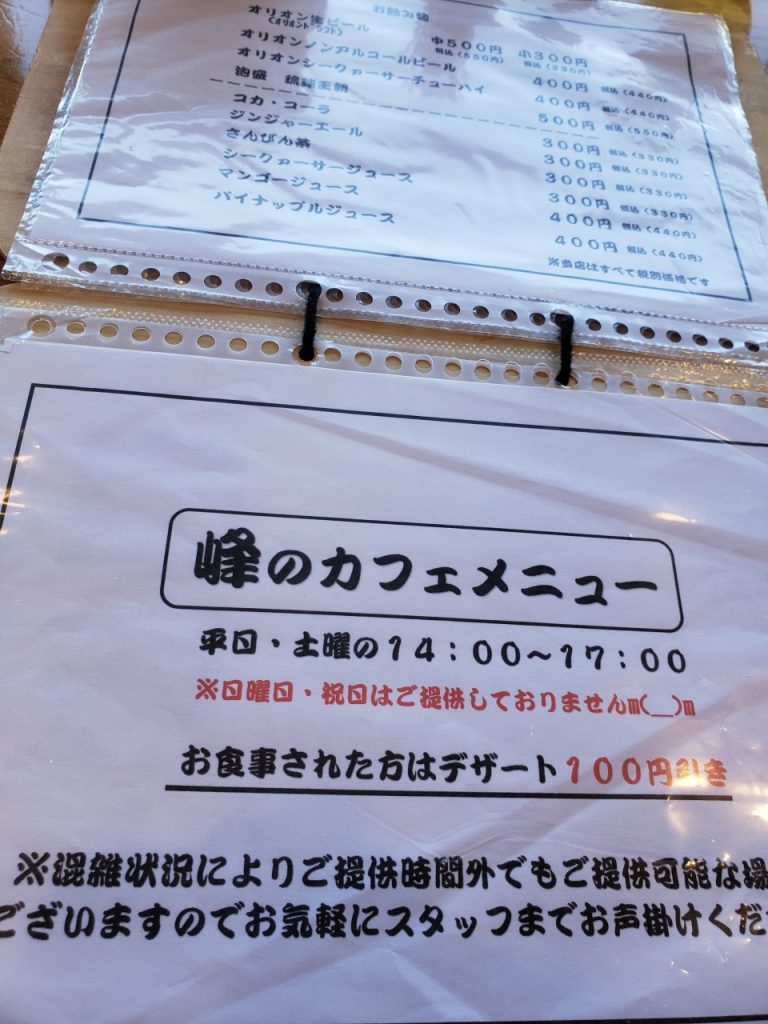 お飲み物
オリオン生ビール 中500円 小300円
(オリオンドラフト) 税込(550円) 税込(330円)
オリオンノンアルコールビール 400円 税込(440円)
オリオンシークァーサーチューハイ 400円 税込(440円)
泡盛 琉球王朝 500円 税込(550円)
コカ・コーラ 300円 税込(330円)
ジンジャーエール 300円 税込(330円)
さんぴん茶 300円 税込(330円)
シークァーサージュース 300円 税込(330円)
マンゴージュース 400円 税込(440円)
パイナップルジュース 400円 税込(440円)
※当店はすべて税別価格です
峰のカフェメニュー
平日・土曜の14:00~17:00
※日曜日・祝日はご提供しておりませんm(__)m
お食事された方はデザート100円引き
※混雑状況によりご提供時間外でもご提供可能な場
ございますのでお気軽にスタッフまでお声掛けくだ